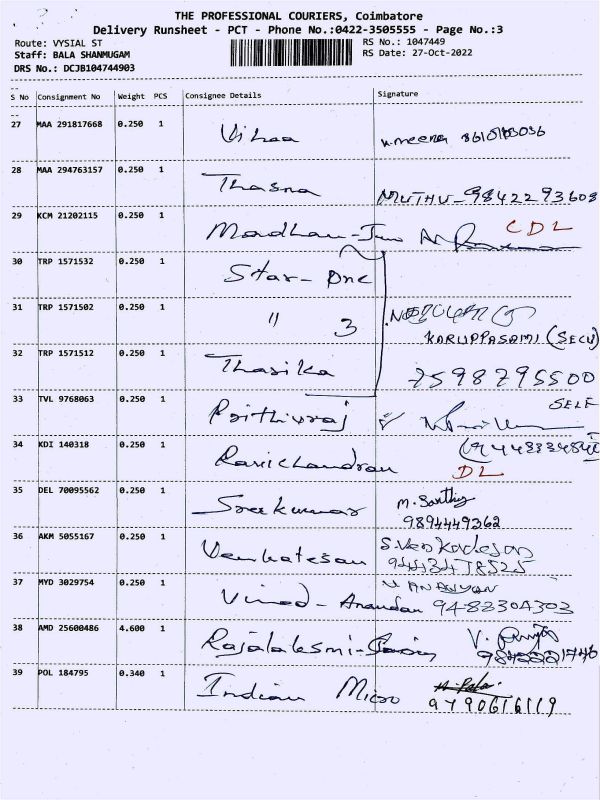 THE PROFESSIONAL COURIERS, Coimbatore
Delivery Runsheet - PCT - Phone No.:0422-3505555 - Page No.:3
Route: VYSIAL ST
RS No.: 1047449
Staff: BALA SHANMUGAM
RS Date: 27-Oct-2022
DRS No.: DCJB104744903
S No Consignment No Weight PCS Consignee Details Signature
27 MAA 291817668 0.250 1 Vihaa
28 MAA 294763157 0.250 1 Thasna MUTHU-9842293608
29 KCM 21202115 0.250 1 Madhau- CDL
30 TRP 1571532 0.250 1 Star-One
31 TRP 1571502 0.250 1 " 3
KARUPPASAMI (SECU)
32 TRP 1571512 0.250 1 Thasika 7598795500
33 TVL 9768063 0.250 1 Prithivraj SELF
34 KDI 140318 0.250 1 Ravichandran
DL
35 DEL 70095562 0.250 1 Sreekumar M. Santhiy
9894449362
36 AKM 5055167 0.250 1 Venkatesan S.Venkadesan
9443478525
37 MYD 3029754 0.250 1 Vinod- Anandan 9488304303
38 AMD 25600486 4.600 1 Rajalaksmi-
39 POL 184795 0.340 1 Indian Micro
9790616119